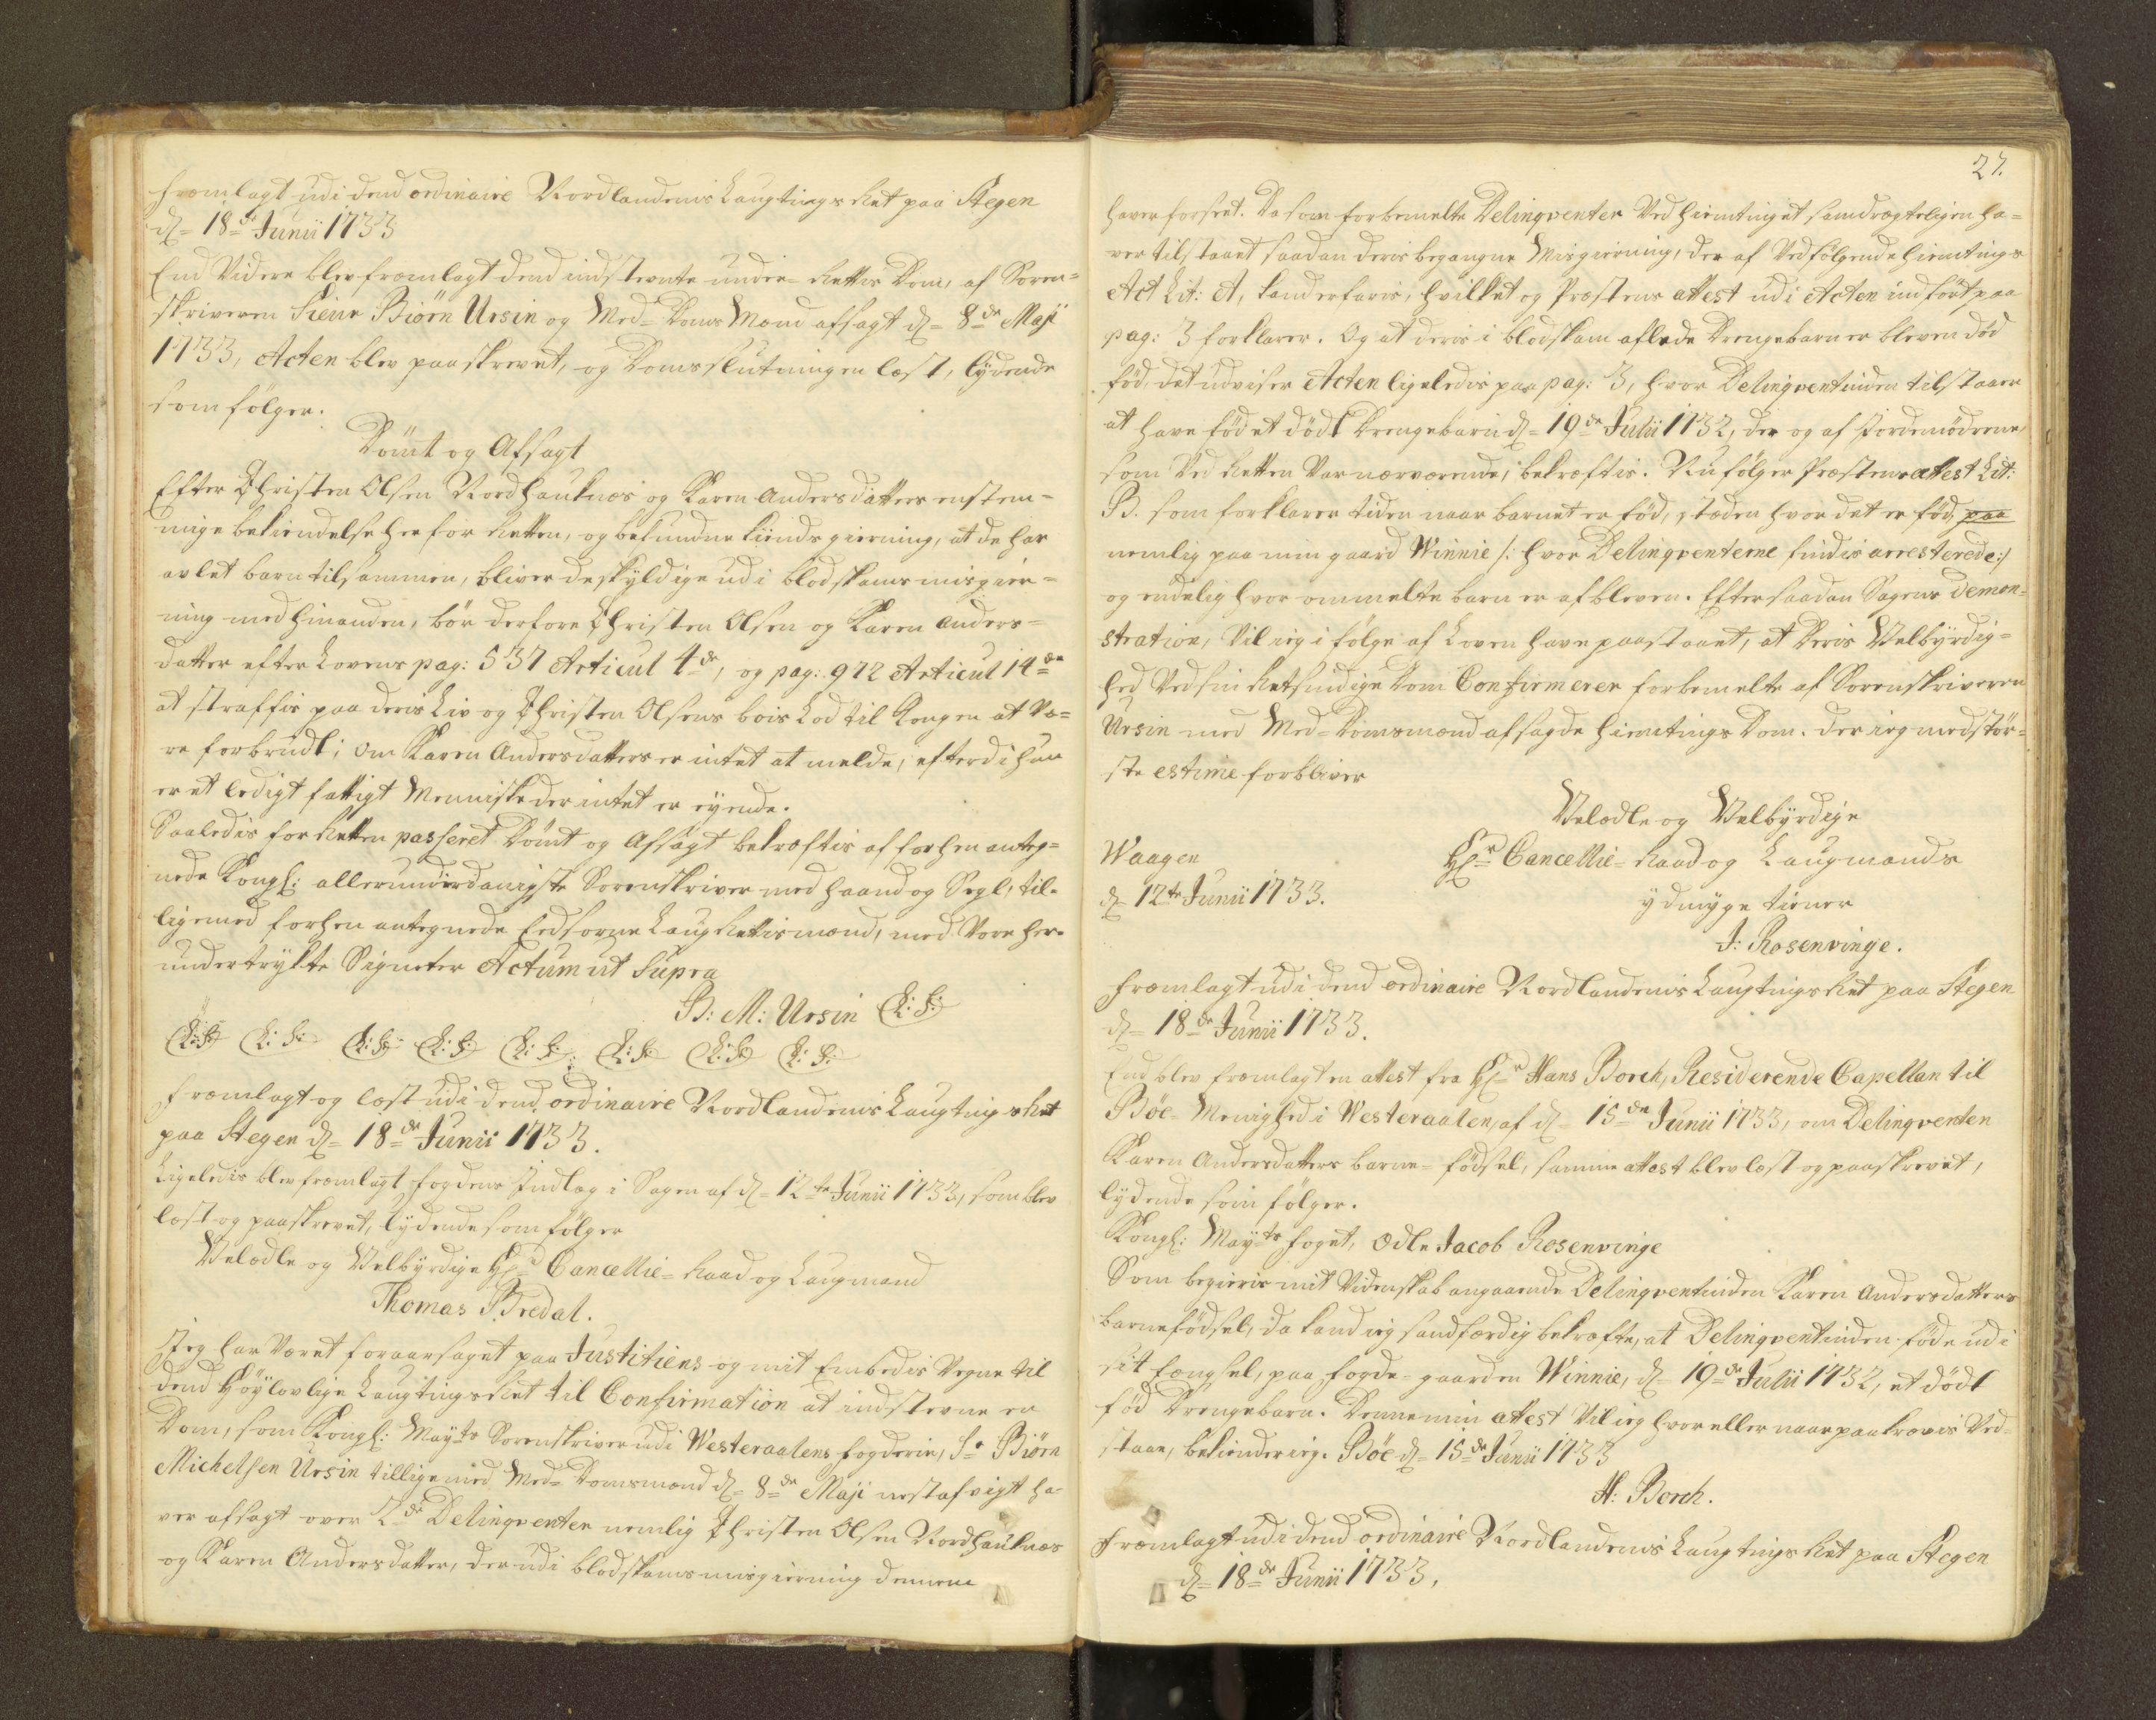 fremlagt udi dend ordinaire Nordlandenis Laugtings Ret paa Stegen
d: 18de Junii 1733
End Videre blev fremlagt dend indstevnte under-Rettis Dom, af Soren-
skriveren Sieur Biørn Ursin og Med-Doms Mænd afsagt d: 8de Maji
1733, Acten blev paaskrevet, og Doms slutningen læst, lydende
som følger.
Dømt og Afsagt
Efter Christen Olsen Nordhauknæs og Karen Andersdatters enstem-
mige bekiendelse her for Retten, og befundne Kiends gierning, at de har
avlet barn tilsammen, bliver de skyldige udi blodskams misgier-
ning med hinanden, bør derfore Christen Olsen og Karen Anders-
datter efter Lovens pag: 537 Articul 4de, og pag: 972 Articul 14de
at straffis paa deris Liv og Christen Olsens boes Lod til Kongen at Væ-
re forbrudt; om Karen Andersdatters er intet at melde, efterdi hun
er et ledigt fattigt Menniske der intet er eyende.
Saaledis for Retten passeret Dømt og Afsagt bekræftis af forhen anteg-
nede Kongl: allerunderdanigste Sorenskriver med haand og Segl, til-
ligemed forhen antegnede Eedsorne Laug Rettismænd, med Vore her-
undertrykte Signeter Actum ut Supra
B: M: Ursin (L: S:)
(L: S:) (L: S:) (L: S:) (L: S:) (L: S:) (L: S:) (L: S:) (L: S:)
Fremlagt og læst udi dend ordinaire Nordlandenis Laugtings Ret
paa Stegen d: 18de Junii 1733.
Ligeledis blev fremlagt fogdens Indlæg i Sagen af d: 12te Junii 1733, som blev
læst og paaskrevet, lydende som følger
Velædle og Velbyrdige Hr Cancellie-Raad og Laugmand
Thomas Bredal.
Jeg har Været foraarsaget paa Justitiens og mit Embedis Vegne til
dend Høylovlige Laugtings Ret til Confirmation at indstevne en
Dom, som Kongl: Mayts Sorenskriver udi Westeraalens fogderie, Sr Biørn
Michelsen Ursin tilligemed Med-Domsmænd d: 8de Maji nest afvigt ha-
ver afsagt over 2de Delinqventer nemlig Christen Olsen Nordhauknæs
og Karen Andersdatter, der udi blodskams misgierning dennem
27.
haver forseet. Da som forbemelte Delinqventer Ved hiemtinget samdrægteligen ha-
ver tilstaaet saadan deris begangne Misgierning, der af Vedfølgende hiemtings
Act Lit: A, kand erfaris, hvilket og Præstens attest udi Acten indført paa
pag: 3 forklarer. Og at deris i blodskam aflede Drengebarn er bleven død
fød, det udviser Acten ligeledis paa pag: 3, hvor Delinqventinden tilstaaer
at have fød et dødt Drengebarn d: 19de Julii 1732, der og af Jordemødrene
som Ved Retten Var nærværende, bekræftis. Nu følger Præstens attest Lit:
B. som forklarer tiden naar barnet er fød, stæden hvor det er fød, paa
nemlig paa min gaard Winnie /: hvor Delinqventerne findis arresterede :/
og endelig hvor ommelte barn er afbleven. Efter saadan Sagens Demon-
stration, Vil ieg i følge af Loven have paastaaet, at Deris Velbyrdig-
hed Ved sin Retsindige Dom Confirmerer forbemelte af Sorenskriveren
Ursin med Med-Domsmænd afsagde hiemtings Dom. der ieg med stør-
ste estime forbliver
Velædle og Velbyrdige
Waagen
Hr Cancellie-Raad og Laugmands
d: 12te Junii 1733.
ydmyge tiener
J: Rosenvinge.
Fremlagt udi dend ordinaire Nordlandenis Laugtings Ret paa Stegen
d: 18de Junii 1733.
End blev fremlagt en attest fra Hr Hans Borch, Residerende Capellan til
Bøe-Menighed i Westeraalen, af d: 15de Junii 1733, om Delinqventen
Karen Andersdatters barne-fødsel, samme attest blev læst og paaskrevet,
lydende som følger.
Kongl: Mayts foget, Ædle Jacob Rosenvinge
Som begieris mit Videnskab angaaende Delinqventinden Karen Andersdatters
barnefødsel, da kand ieg sandfærdig bekræfte, at Delinqventinden føde udi
sit fængsel, paa fogde-gaarden Winnie, d: 19de Julii 1732, et dødt
fød Drengebarn. Denne min attest Vil ieg hvor eller naar paakræves Ved-
staae, bekiender ieg. Bøe d: 15de Junii 1733
H: Borch.
Fremlagt udi dend ordinaire Nordlandenis Laugtings Ret paa Stegen
d: 18de Junii 1733.